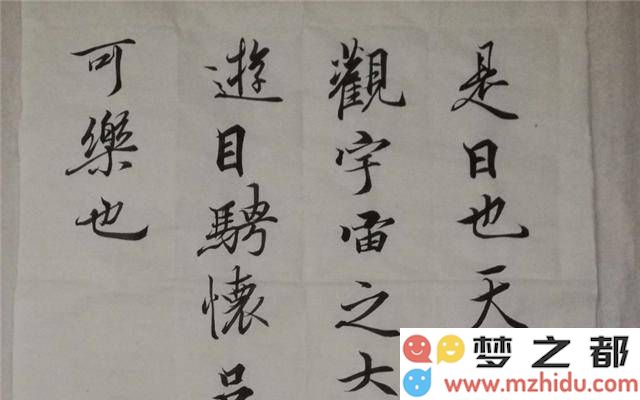 是日也天
觀宇宙之大
遊目騁懷
可樂也
梦之都
www.mzhidu.com